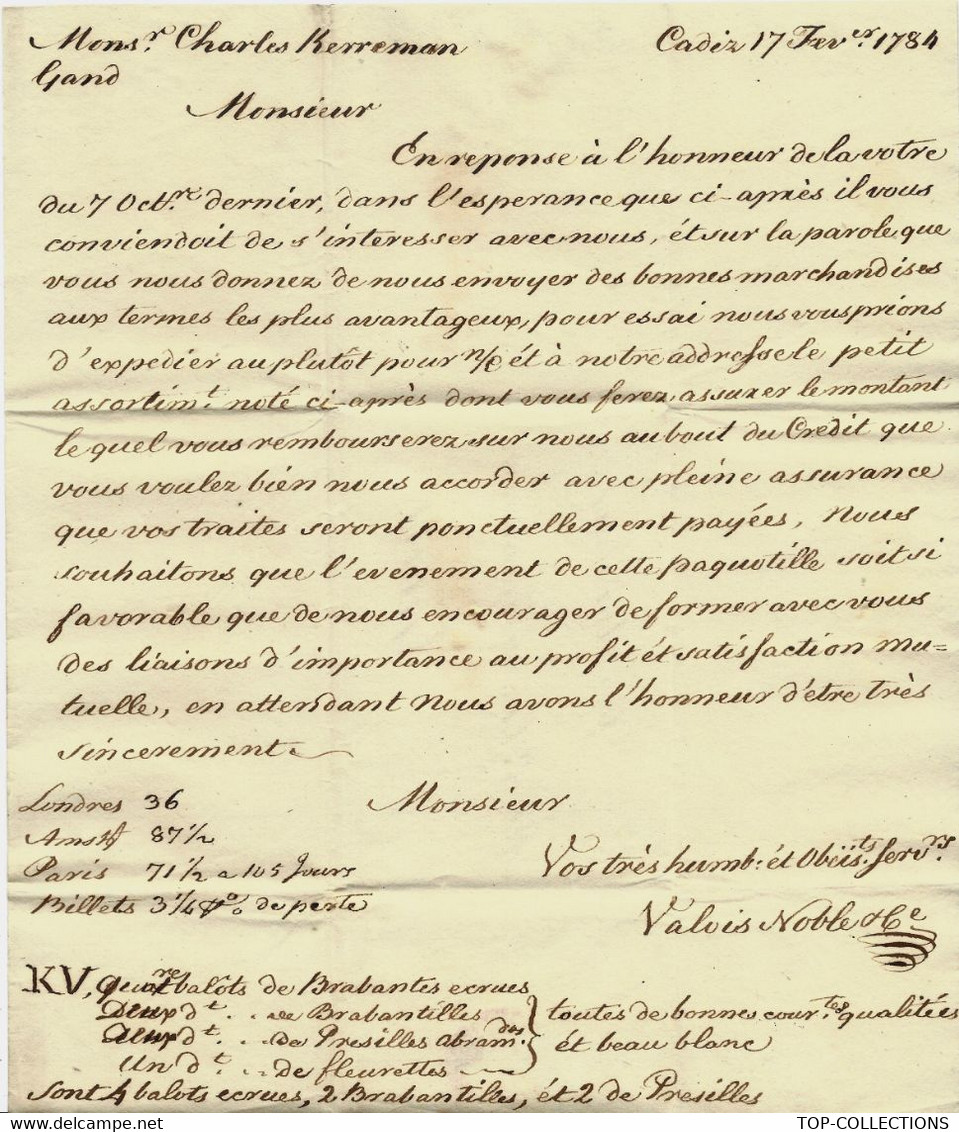 Mons.r Charles Kerreman Cadiz 17 Fev.er 1784
Gand
Monsieur
En reponse à l'honneur de la votre
du 7 Oct.re dernier, dans l'esperance que ci-après il vous
conviendoit de s'interesser avec nous, ét sur la parole que
vous nous donnez de nous envoyer des bonnes marchandises
aux termes les plus avantageux, pour essai nous vous prions
d'expedier au plutôt pour n/c ét à notre addresse le petit
assortim.t noté ci-après dont vous ferez assurer le montant
le quel vous rembourserez sur nous au bout du Credit que
vous voulez bién nous accorder avec pleine assurance
que vos traites seront ponctuellement payées, Nous
souhaitons que l'evenement de cette paquotille soit si
favorable que de nous encourager de former avec vous
des liaisons d'importance au profit ét satisfaction mu=
tuelle, en attendant Nous avons l'honneur d'être très
sincerement.
Monsieur
Londres 36
Amst 87 1/2
Paris 71 1/2 a 105 Jours
Billets 3 1/4 p% de perte
Vos très humb: ét Obeïs.ts serv.rs
Valois Noble & C.e
KV, Quatre balots de Brabantes ecrues
Deux d.t .. de Brabantilles
Deux d.t .. de Presilles abram.das
Un d.t .. de fleurettes
toutes de bonnes cour.tes qualitées
ét beau blanc
sont 4 balots ecrues, 2 Brabantilles, ét 2 de Presilles
TOP-COLLECTIONS